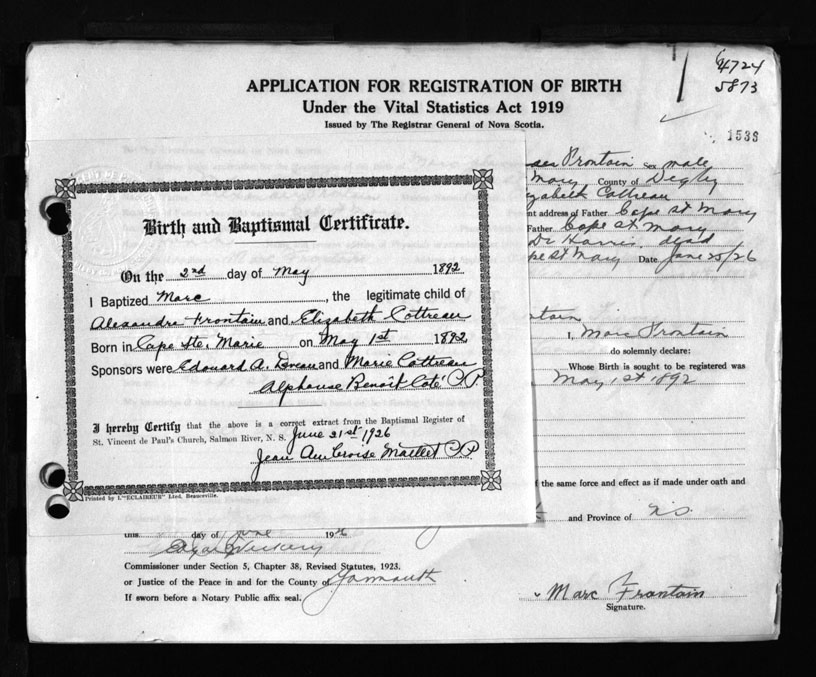 4724
5873
APPLICATION FOR REGISTRATION OF BIRTH
Under the Vital Statistics Act 1919
Issued by The Registrar General of Nova Scotia.
1538
Frontain Sex male
Mary County of Degby
zabeth Cottreau
nt address of Father Cape St Mary
Father Cape St Mary
Dr Harris dead
pe St Mary Date June 25/26
ntain
I, Marc Frontain
do solemnly declare:
Whose Birth is sought to be registered was
May 1st 1892
f the same force and effect as if made under oath and
and Province of N.S.
Birth and Baptismal Certificate.
On the 2nd day of May 1892
I Baptized Marc, the legitimate child of
Alexandre Frontain and Elizabeth Cottreau
Born in Cape Ste. Marie on May 1st 1892
Sponsors were Edouard A. Deveau and Marie Cottreau
Alphonse Benoit Coté P.P.
I hereby Certify that the above is a correct extract from the Baptismal Register of
St. Vincent de Paul's Church, Salmon River, N. S. June 21st 1926
Jean Ambroise Maillet P.P.
Printed by L'"ECLAIREUR" Ltd. Beauceville.
this day of June 192
Commissioner under Section 5, Chapter 38, Revised Statutes, 1923.
or Justice of the Peace in and for the County of Yarmouth
If sworn before a Notary Public affix seal.
Marc Frontain
Signature.